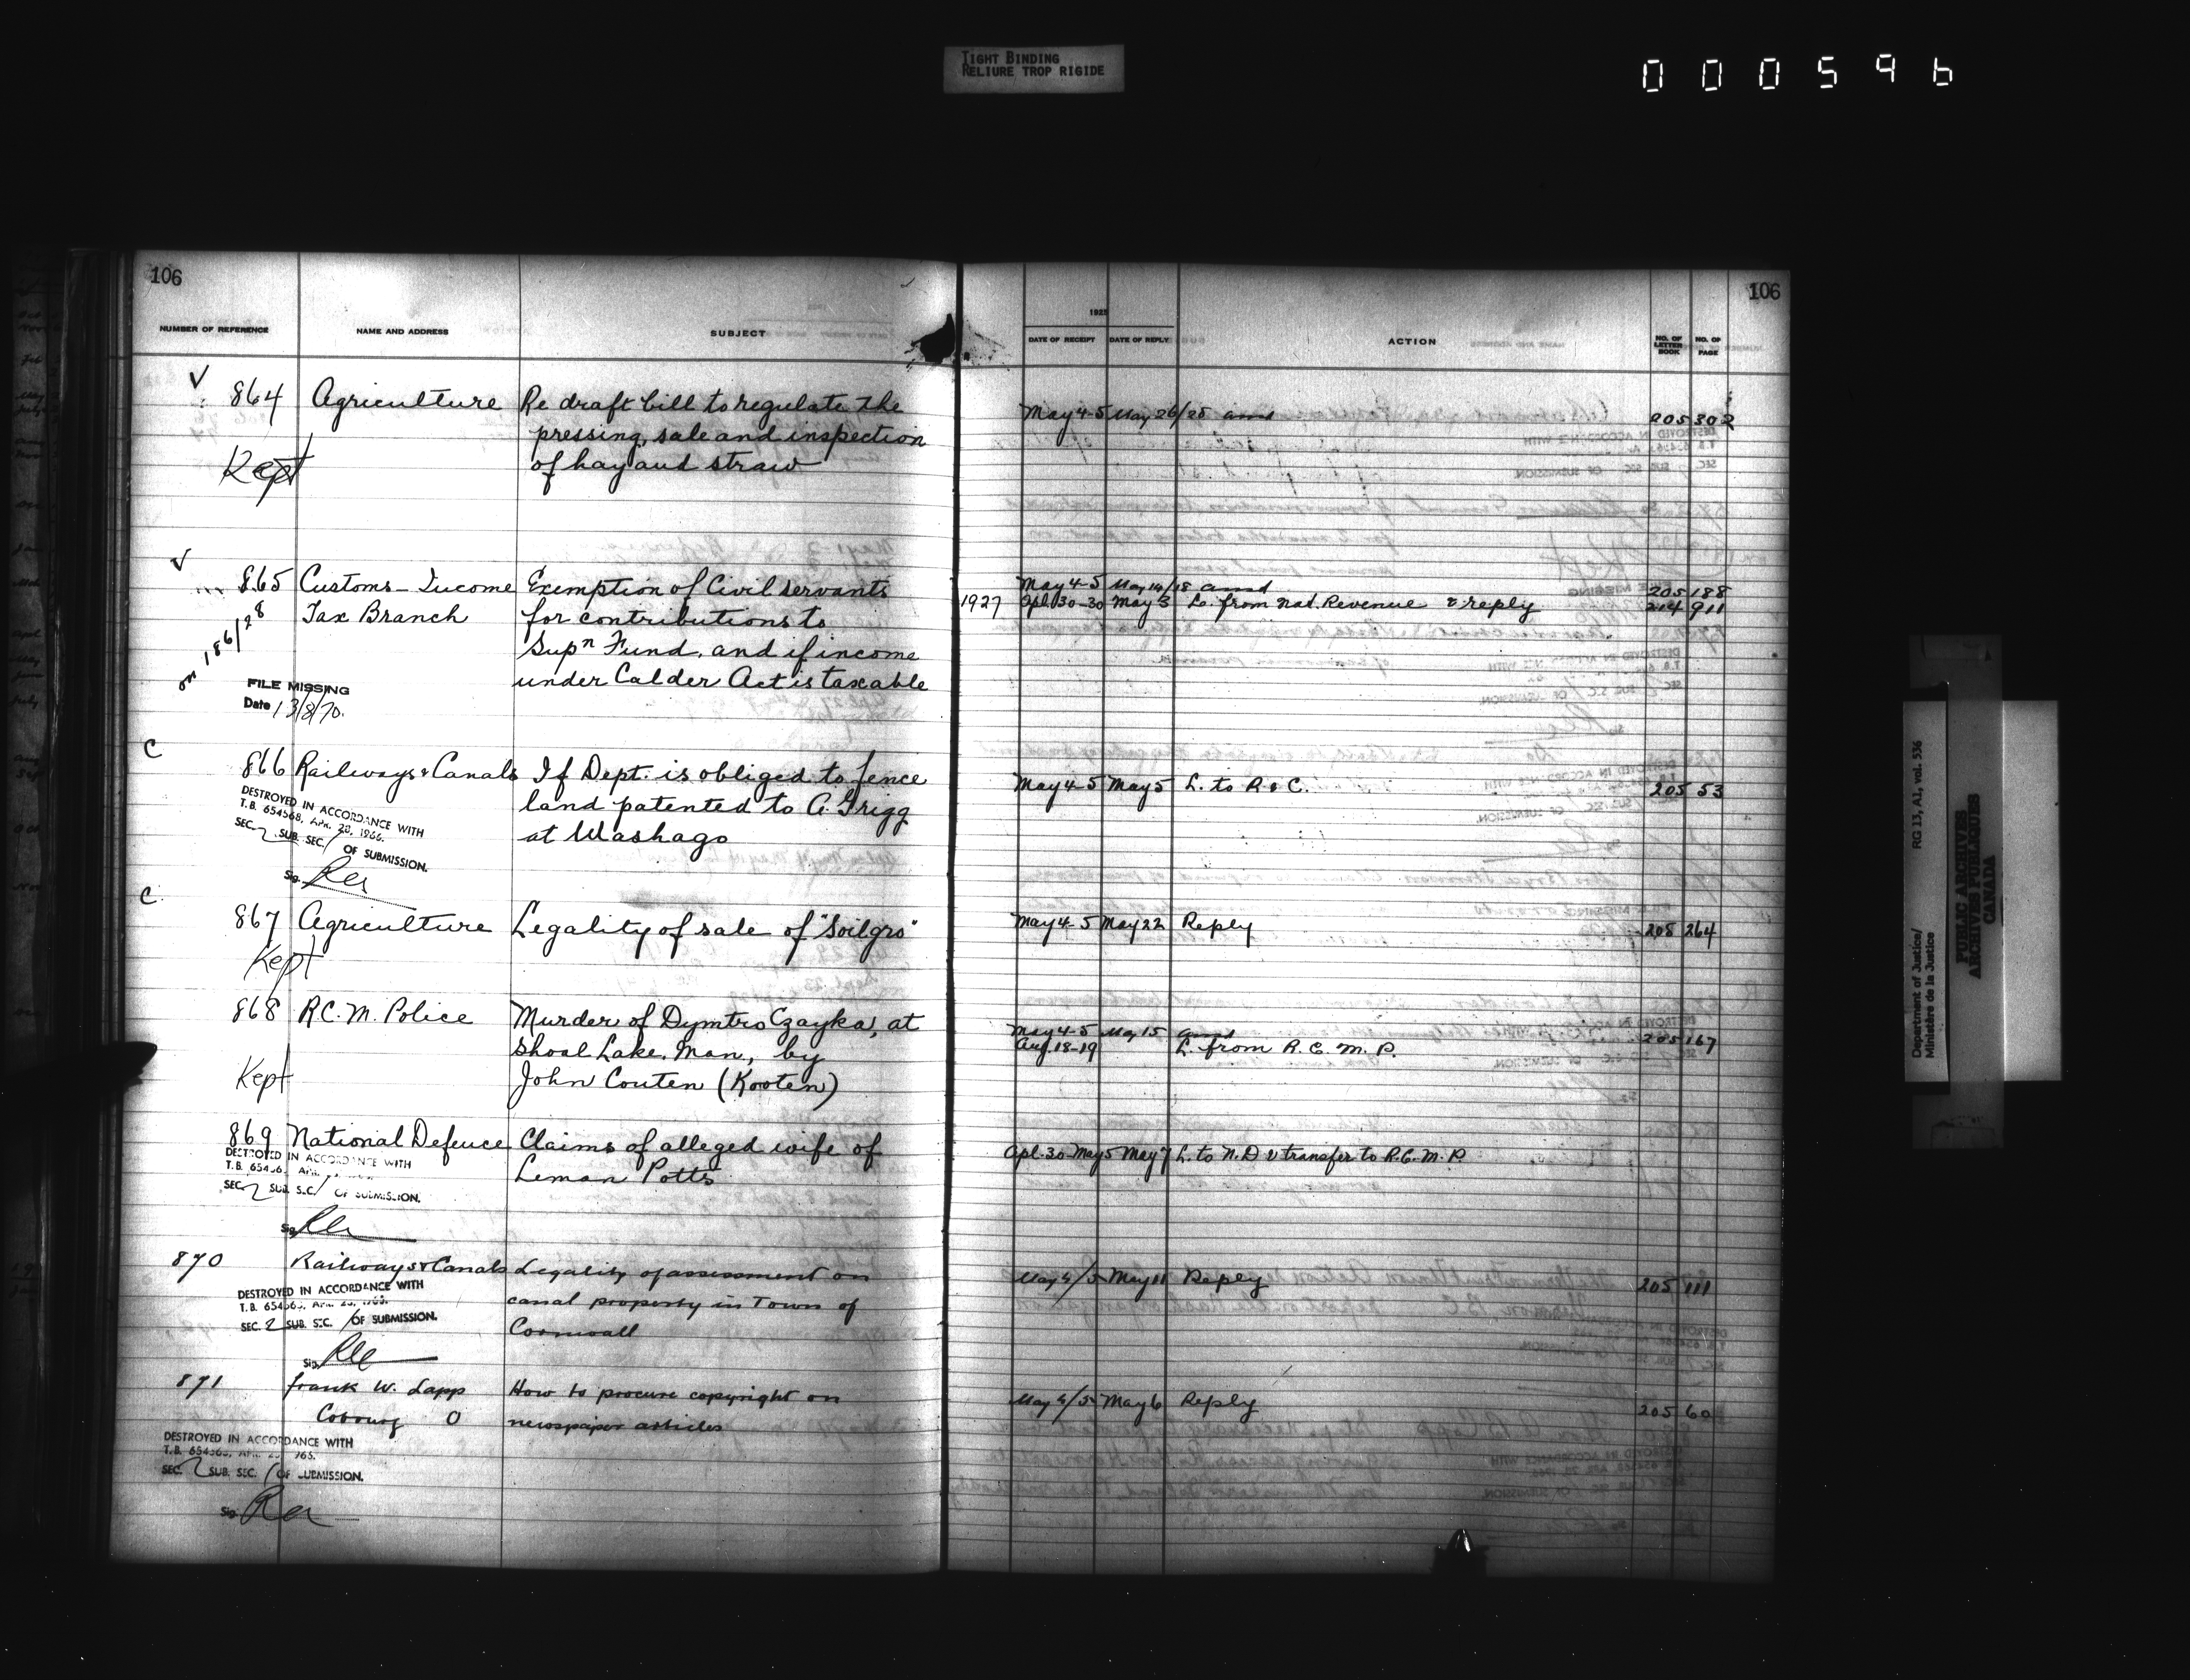 TIGHT BINDING
RELIURE TROP RIGIDE
000596
106
NUMBER OF REFERENCE NAME AND ADDRESS SUBJECT
V
864 Agriculture Re draft bill to regulate the
pressing, sale and inspection
Kept of hay and straw
V
865 Customs - Income Exemption of Civil servants
Tax Branch for contributions to
on 186/28 Supn Fund, and if income
under Calder Act is taxable
FILE MISSING
Date 13/8/70.
C
866 Railways & Canals If Dept. is obliged to fence
land patented to A. Grigg
at Washago
DESTROYED IN ACCORDANCE WITH
T.B. 654568, APR. 28, 1966.
SEC. 2 SUB. SEC. / OF SUBMISSION.
Sig.
C
867 Agriculture Legality of sale of "Soilgro"
Kept
868 R.C.M. Police Murder of Dymtro Czayka, at
Shoal Lake, Man., by
Kept John Couten (Kooten)
869 National Defence Claims of alleged wife of
Leman Potts
DESTROYED IN ACCORDANCE WITH
T.B. 65456
SEC. 2 SUB. SEC. / OF SUBMISSION.
Sig.
870 Railways & Canals Legality of assessment on
canal property in Town of
Cornwall
DESTROYED IN ACCORDANCE WITH
SEC. 2 SUB. SEC. / OF SUBMISSION.
Sig.
871 Frank W. Lapp How to procure copyright on
Cobourg O newspaper articles
DESTROYED IN ACCORDANCE WITH
SEC. 2 SUB. SEC. / OF SUBMISSION.
Sig.
106
1925
DATE OF RECEIPT DATE OF REPLY ACTION NO. OF LETTER BOOK NO. OF PAGE
May 4-5 May 26/25 205 302
May 4-5 May 14/18 205 188
1927 Apl. 30-30 May 3 L. from Nat. Revenue & reply 214 911
May 4-5 May 5 L. to R. & C. 205 53
May 4-5 May 22 Reply 205 264
May 4-5 May 15 205 167
Aug. 18-19 L. from R.C.M.P.
Apl. 30 May 5 May 7 L. to N.D. & transfer to R.C.M.P.
May 4/5 May 11 Reply 205 111
May 4/5 May 6 Reply 205 60
Department of Justice/
Ministère de la Justice
RG 13, A1, vol. 536
PUBLIC ARCHIVES
ARCHIVES PUBLIQUES
CANADA